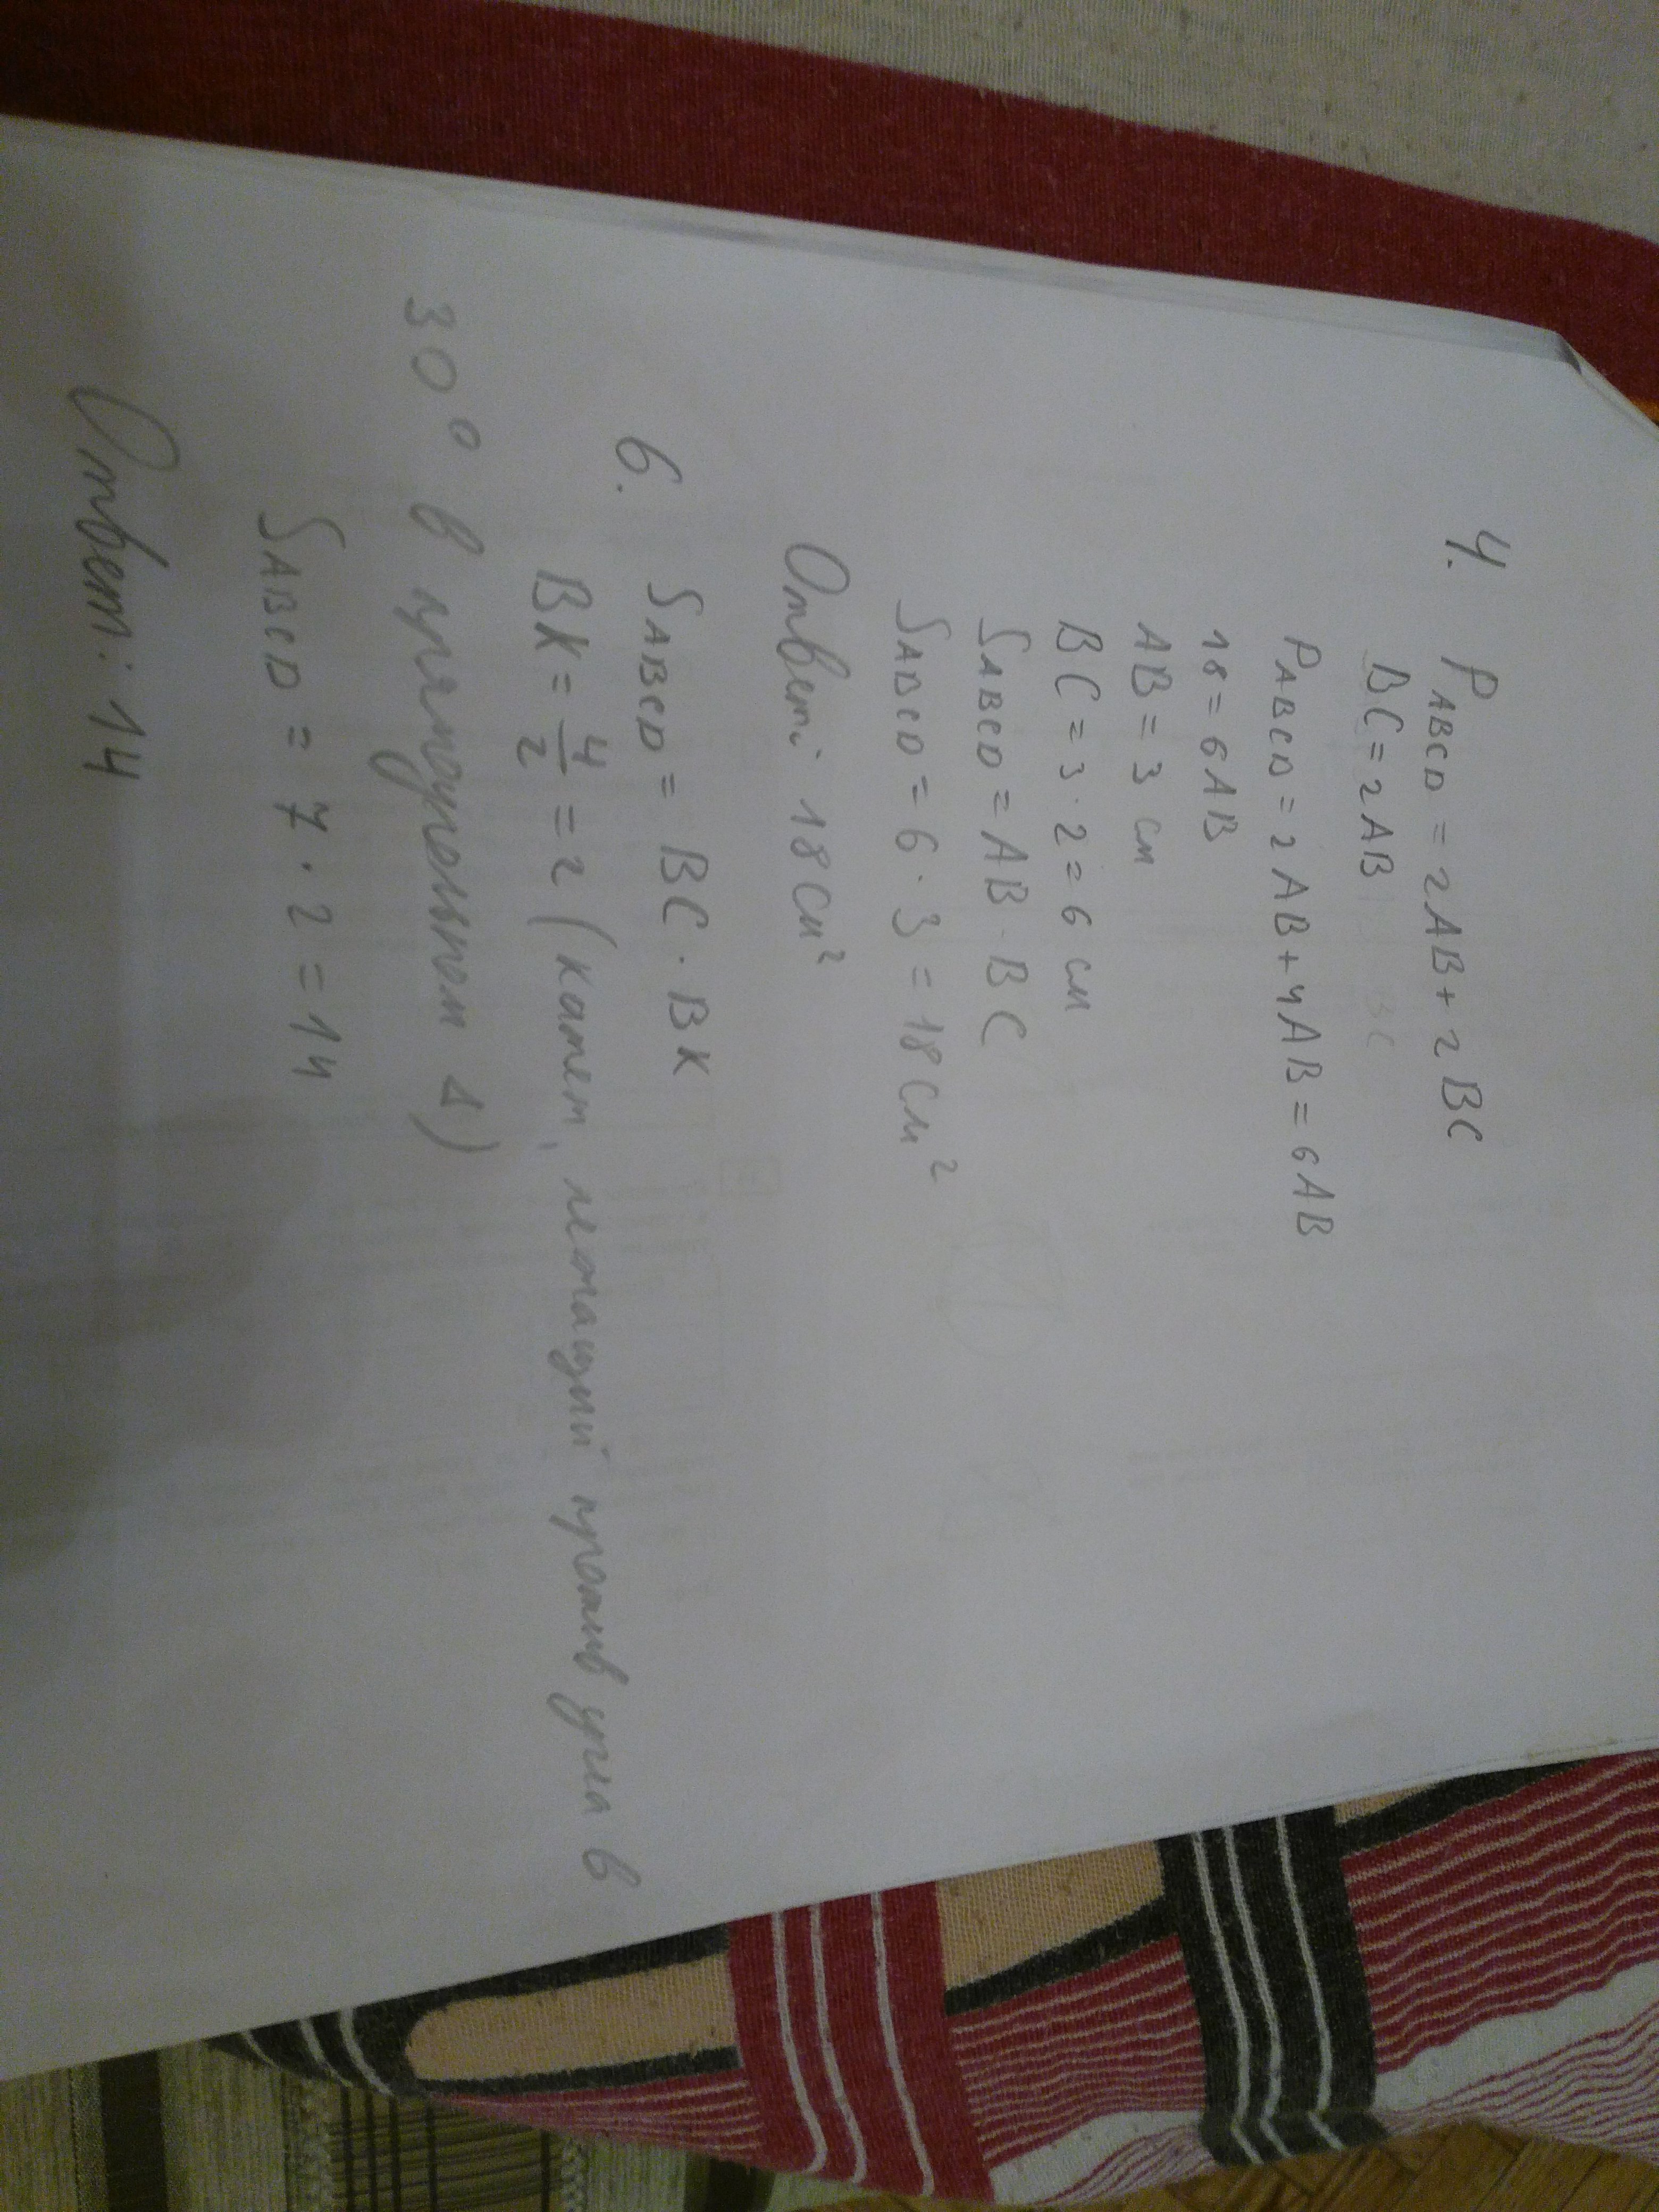 4. P_ABCD = 2AB + 2BC
BC = 2AB
P_ABCD = 2AB + 4AB = 6AB
18 = 6AB
AB = 3 см
BC = 3 · 2 = 6 см
S_ABCD = AB · BC
S_ABCD = 6 · 3 = 18 см²
Ответ: 18 см²
6. S_ABCD = BC · BK
BK = 4/2 = 2 (катет, лежащий против угла в
30° в прямоугольном Δ)
S_ABCD = 7 · 2 = 14
Ответ: 14